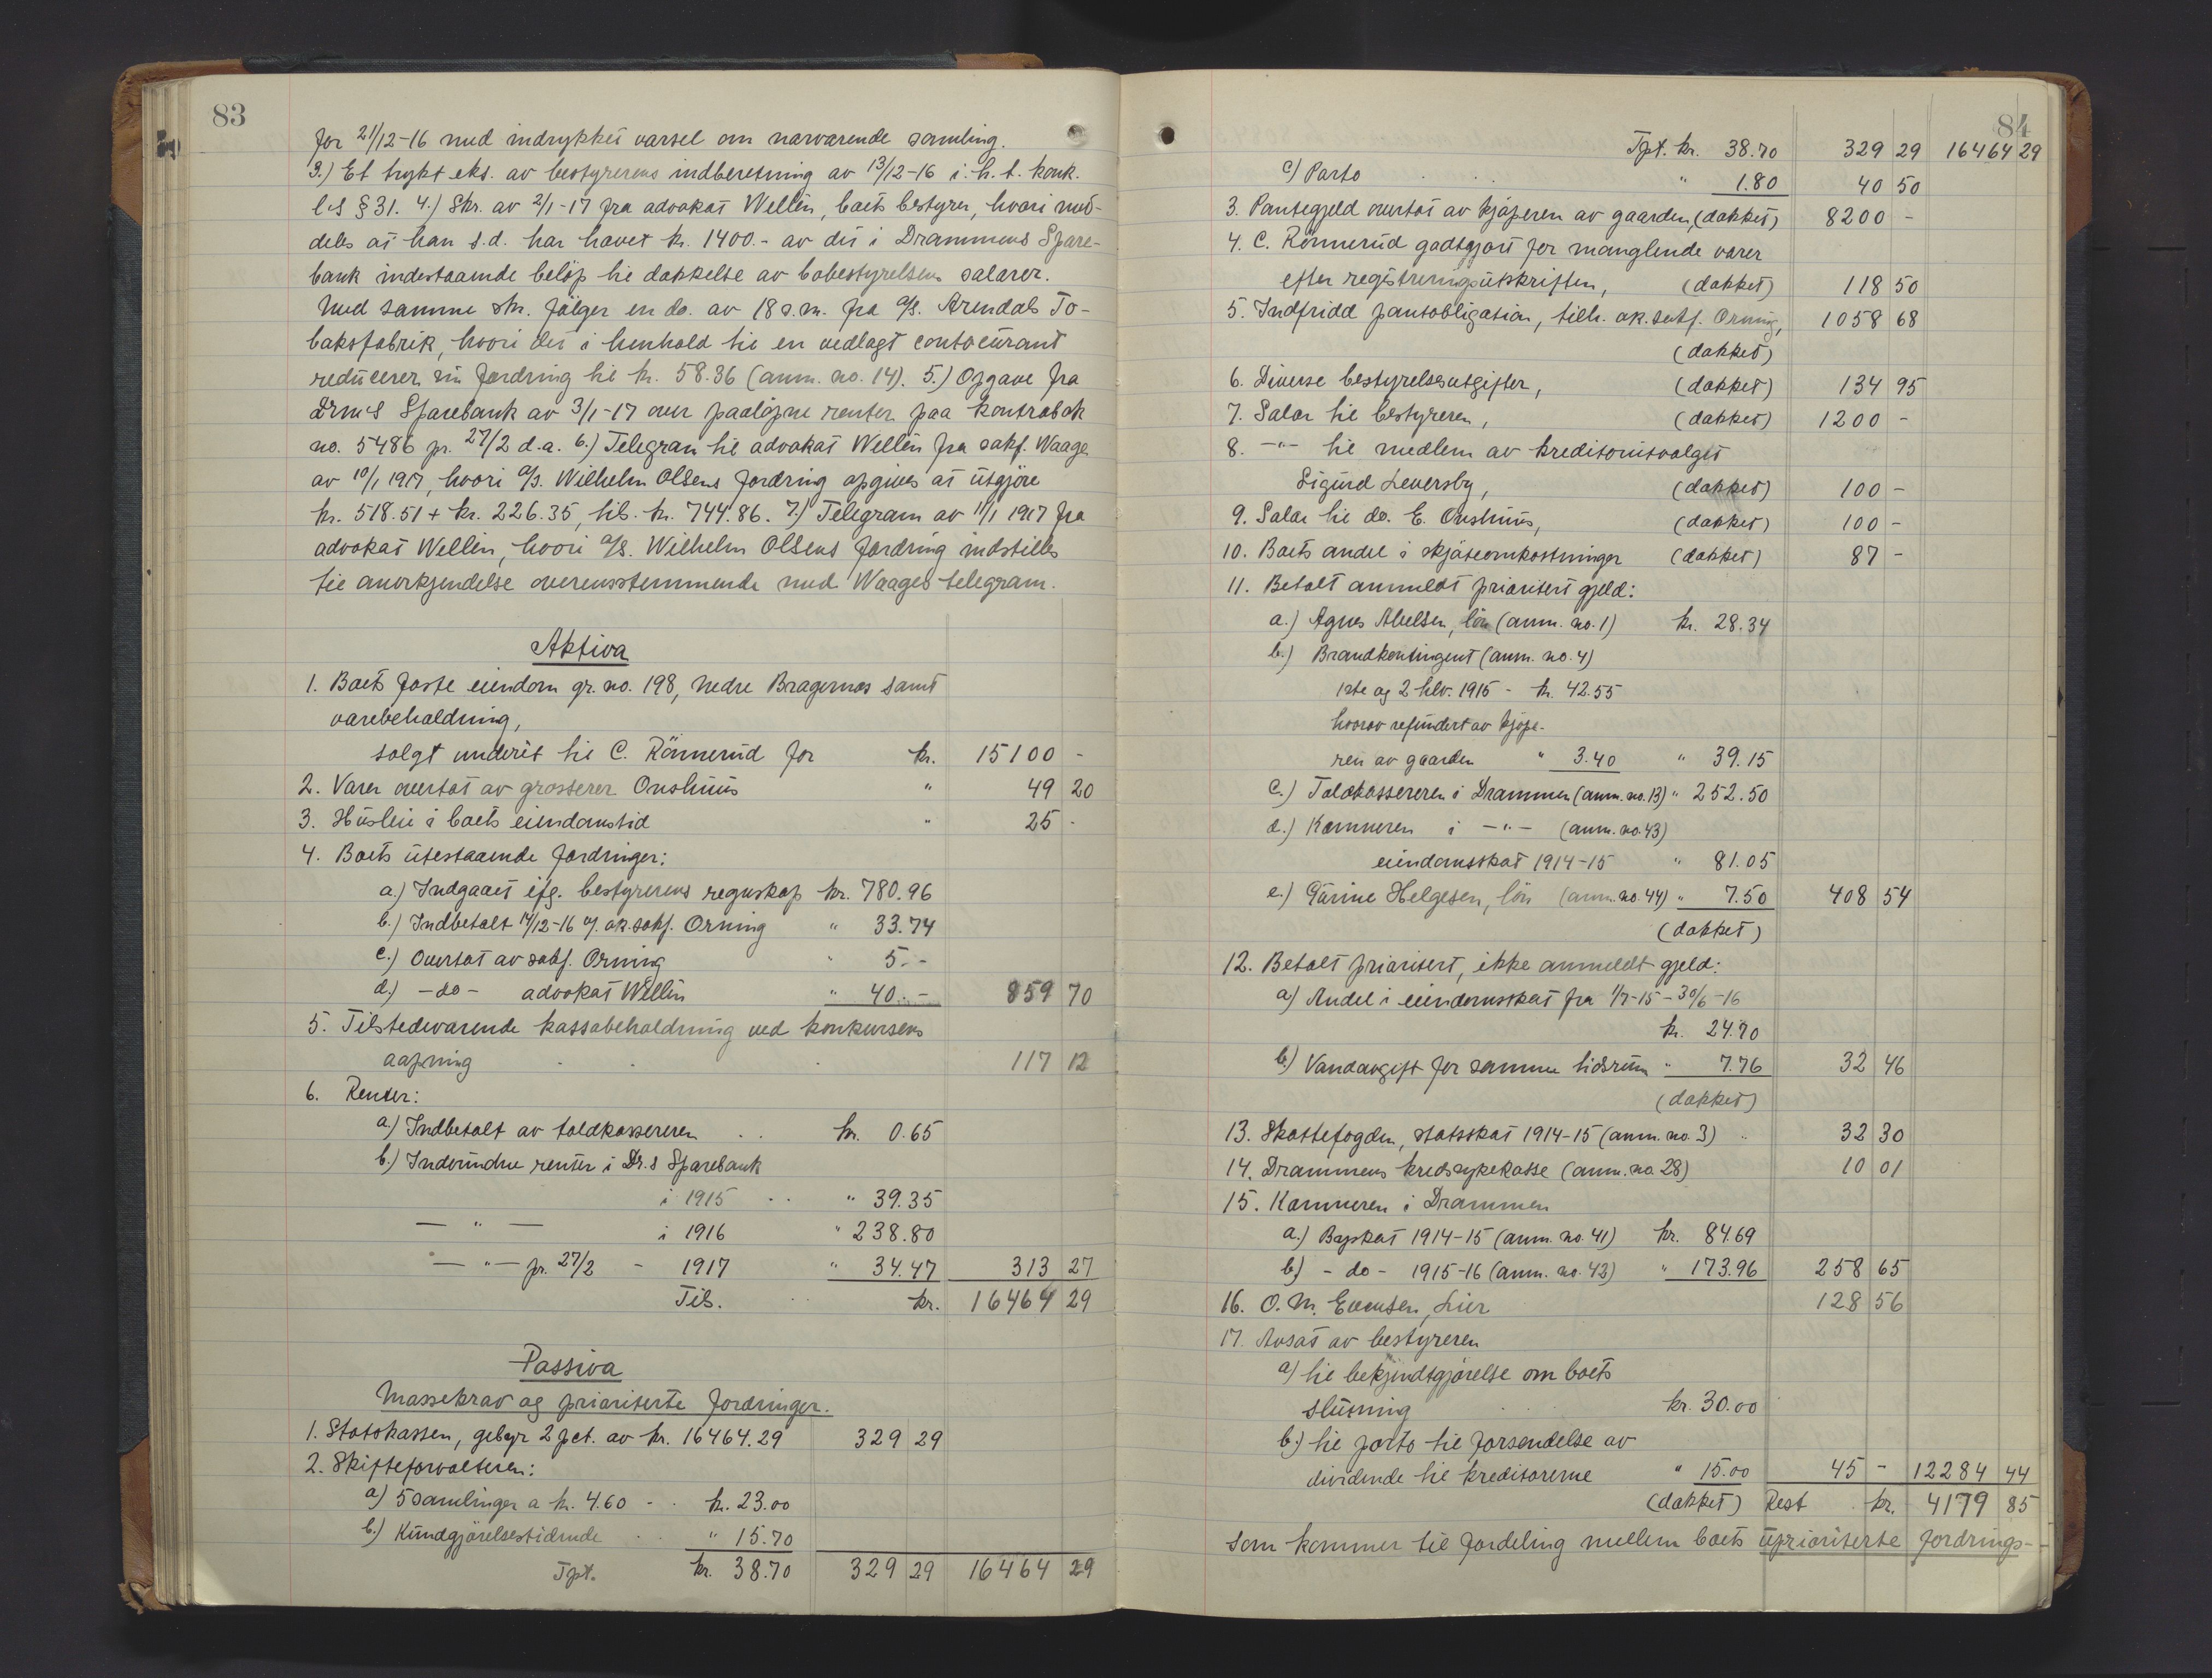 83
for 21/12-16 med indrykket varsel om nærværende samling.
3.) Et trykt eks. av bestyrerens indberetning av 13/12-16 i. h. t. konk.
l's § 31. 4.) Skr. av 2/1-17 fra advokat Wellén, boets bestyrer, hvori med-
deles at han s.d. har hævet kr. 1400.- av det i Drammens Spare-
bank indestaaende beløp til dækkelse av bobestyrelsens salærer.
Med samme skr. følger en do. av 18 s.m. fra A/S. Arendals To-
baksfabrik, hvori det i henhold til en vedlagt contocurant
reducerer sin fordring til kr. 58.36 (anm. no. 14). 5.) Opgave fra
Drm's Sparebank av 3/1-17 over paaløpne renter paa kontrabok
no. 5486 pr. 27/2 d.a. 6.) Telegram til advokat Wellén fra sakf. Waage
av 10/1 1917, hvori A/S. Wilhelm Olsens fordring opgives at utgjøre
kr. 518.51 + kr. 226.35, tils. kr. 744.86. 7.) Telegram av 11/1 1917 fra
advokat Wellén, hvori A/S. Wilhelm Olsens fordring indstilles
til anerkjendelse overensstemmende med Waages telegram.
Aktiva
1. Boets faste eiendom gr. no. 198, Nedre Bragernæs samt
varebeholdning,
solgt underét til C. Rönnerud for kr. 15100 -
2. Varer overtat av grosserer Onshuus " 49 20
3. Husleie i boets eiendomstid " 25 -
4. Boets utestaaende fordringer:
a.) Indgaaet ifg. bestyrerens regnskap kr. 780.96
b.) Indbetalt 14/12-16 af o.r.sakf. Orning " 33.74
c.) Overtat av sakf. Orning " 5.-
d.) - do - advokat Wellén " 40.- 859 70
5. Tilstedeværende kassabeholdning ved konkursens
aapning 117 12
6. Renter:
a.) Indbetalt av toldkassereren . . kr. 0.65
b.) Indvundne renter i Dr.s Sparebank
i 1915 . . " 39.35
— " — i 1916 " 238.80
— " — pr. 27/2 - 1917 " 34.47 313 27
Tils. kr. 16464 29
Passiva
Massekrav og prioriterte fordringer.
1. Statskassen, gebyr 2 pct. av kr. 16464.29 329 29
2. Skifteforvalteren:
a) 5 samlinger a kr. 4.60 - . kr. 23.00
b.) Kundgjørelsestidende . . " 15.70
Tpt. kr. 38.70 329 29 16464 29
84
Tpt. kr. 38.70 329 29 16464 29
c) Porto . . . " 1.80 40 50
3. Pantegjeld overtat av kjøperen av gaarden, (dækket) 8200 -
4. C. Rönnerud godtgjort for manglende varer
efter registreringsutskriften, (dækket) 118 50
5. Indfridd pantobligation, tilh. o.r.sakf. Orning, 1058 68
(dækket)
6. Diverse bestyrelsesutgifter, (dækket) 134 95
7. Salær til bestyreren, (dækket) 1200 -
8. -"- til medlem av kreditorutvalget
Sigurd Leversby, (dækket) 100 -
9. Salær til do. E. Onshuus, (dækket) 100 -
10. Boets andel i skjøteomkostninger (dækket) 87 -
11. Betalt anmeldt prioritert gjeld:
a.) Agnes Abelsen, løn (anm. no. 1) kr. 28.34
b.) Brandkontingent (anm. no. 4)
1ste og 2 hlv. 1915 - kr. 42.55
hvorav refundert av kjøpe-
ren av gaarden " 3.40 " 39.15
c.) Toldkassereren i Drammen (anm. no. 13) " 252.50
d.) Kæmneren i -"- (anm. no. 43)
eiendomsskat 1914-15 " 81.05
e.) Tarine Helgesen, løn (anm. no. 44) " 7.50 408 54
(dækket)
12. Betalt prioritert, ikke anmeldt gjeld:
a) Andel i eiendomsskat fra 1/7-15 - 30/6-16
kr. 24.70
b.) Vandavgift for samme tidsrum " 7.76 32 46
(dækket)
13. Skattefogden, statsskat 1914-15 (anm. no. 3) " 32 30
14. Drammens kredssykekasse (anm. no. 28) 10 01
15. Kæmneren i Drammen
a.) Byskat 1914-15 (anm. no. 41) kr. 84.69
b.) - do - 1915-16 (anm. no. 42) " 173.96 258 65
16. O. M. Evensen, Lier 128 56
17. Avsat av bestyreren
a) til bekjendtgjørelse om boets
slutning . . kr. 30.00
b.) til porto til forsendelse av
dividende til kreditorerne " 15.00 45 - 12284 44
(dækket) Rest . kr. 4179 85
som kommer til fordeling mellem boets uprioriterte fordrings-